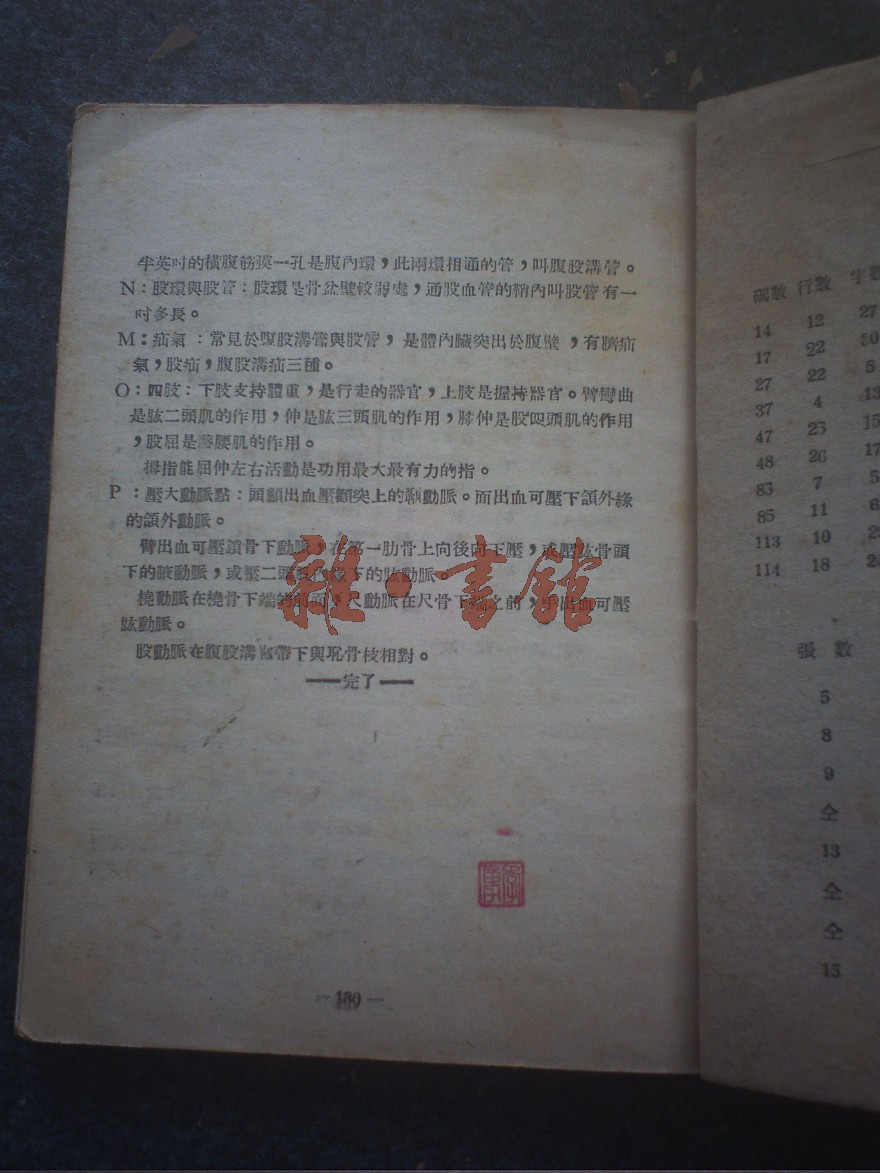 半英吋的橫腹筋膜一孔是腹內環，此兩環相通的管，叫腹股溝管。
N：股環與股管：股環是骨盆壁較弱處，通股血管的鞘內叫股管有一
吋多長。
M：疝氣：常見於腹股溝管與股管，是體內臟突出於腹壁，有臍疝
氣，股疝，腹股溝疝三種。
O：四肢：下肢支持體重，是行走的器官，上肢是握持器官。臂彎曲
是肱二頭肌的作用，伸是肱三頭肌的作用，膝伸是股四頭肌的作用
，股屈是髂腰肌的作用。
拇指能屈伸左右活動是功用最大最有力的指。
P：壓大動脈點：頭顱出血壓顴突上的顳動脈。面出血可壓下頷外緣
的頷外動脈。
臂出血可壓鎖骨下動脈，在第一肋骨上向後向下壓，或壓肱骨頭
下的腋動脈，或壓二頭肌內緣下的肱動脈。
橈動脈在橈骨下端的前面，尺動脈在尺骨下端之前，手出血可壓
肱動脈。
股動脈在腹股溝韌帶下與恥骨枝相對。
——完了——
雜·書館
— 180 —
碼數 行數 字數
14 12 27
17 22 30
27 22 5
37 4 13
47 25 15
48 26 17
83 7 5
85 11 6
113 10 23
114 18
張數
5
8
9
仝
13
仝
仝
15